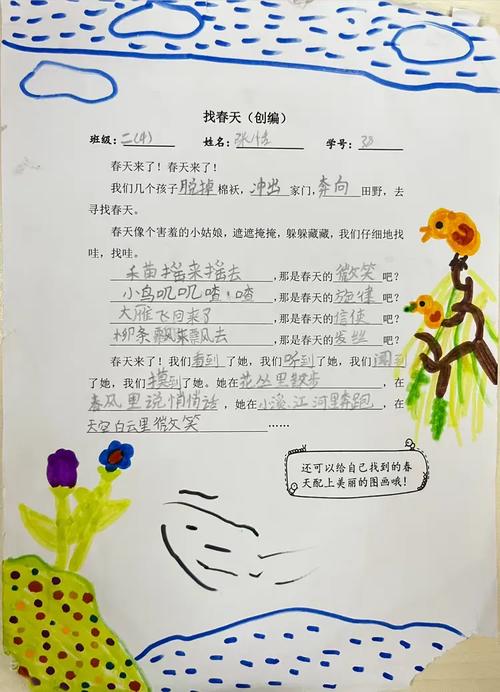 找春天（创编）
班级：二(4) 姓名： 学号：33
春天来了！春天来了！
我们几个孩子脱掉棉袄，冲出家门，奔向田野，去
寻找春天。
春天像个害羞的小姑娘，遮遮掩掩，躲躲藏藏，我们仔细地找
哇，找哇。
禾苗摇来摇去，那是春天的微笑吧？
小鸟叽叽喳喳，那是春天的旋律吧？
大雁飞回来了，那是春天的信使吧？
柳条飘来飘去，那是春天的发丝吧？
春天来了！我们看到了她，我们听到了她，我们闻到
了她，我们摸到了她。她在花丛里散步，在
春风里说悄悄话，她在小溪、江河里奔跑，在
天空白云里微笑……
还可以给自己找到的春
天配上美丽的图画哦！